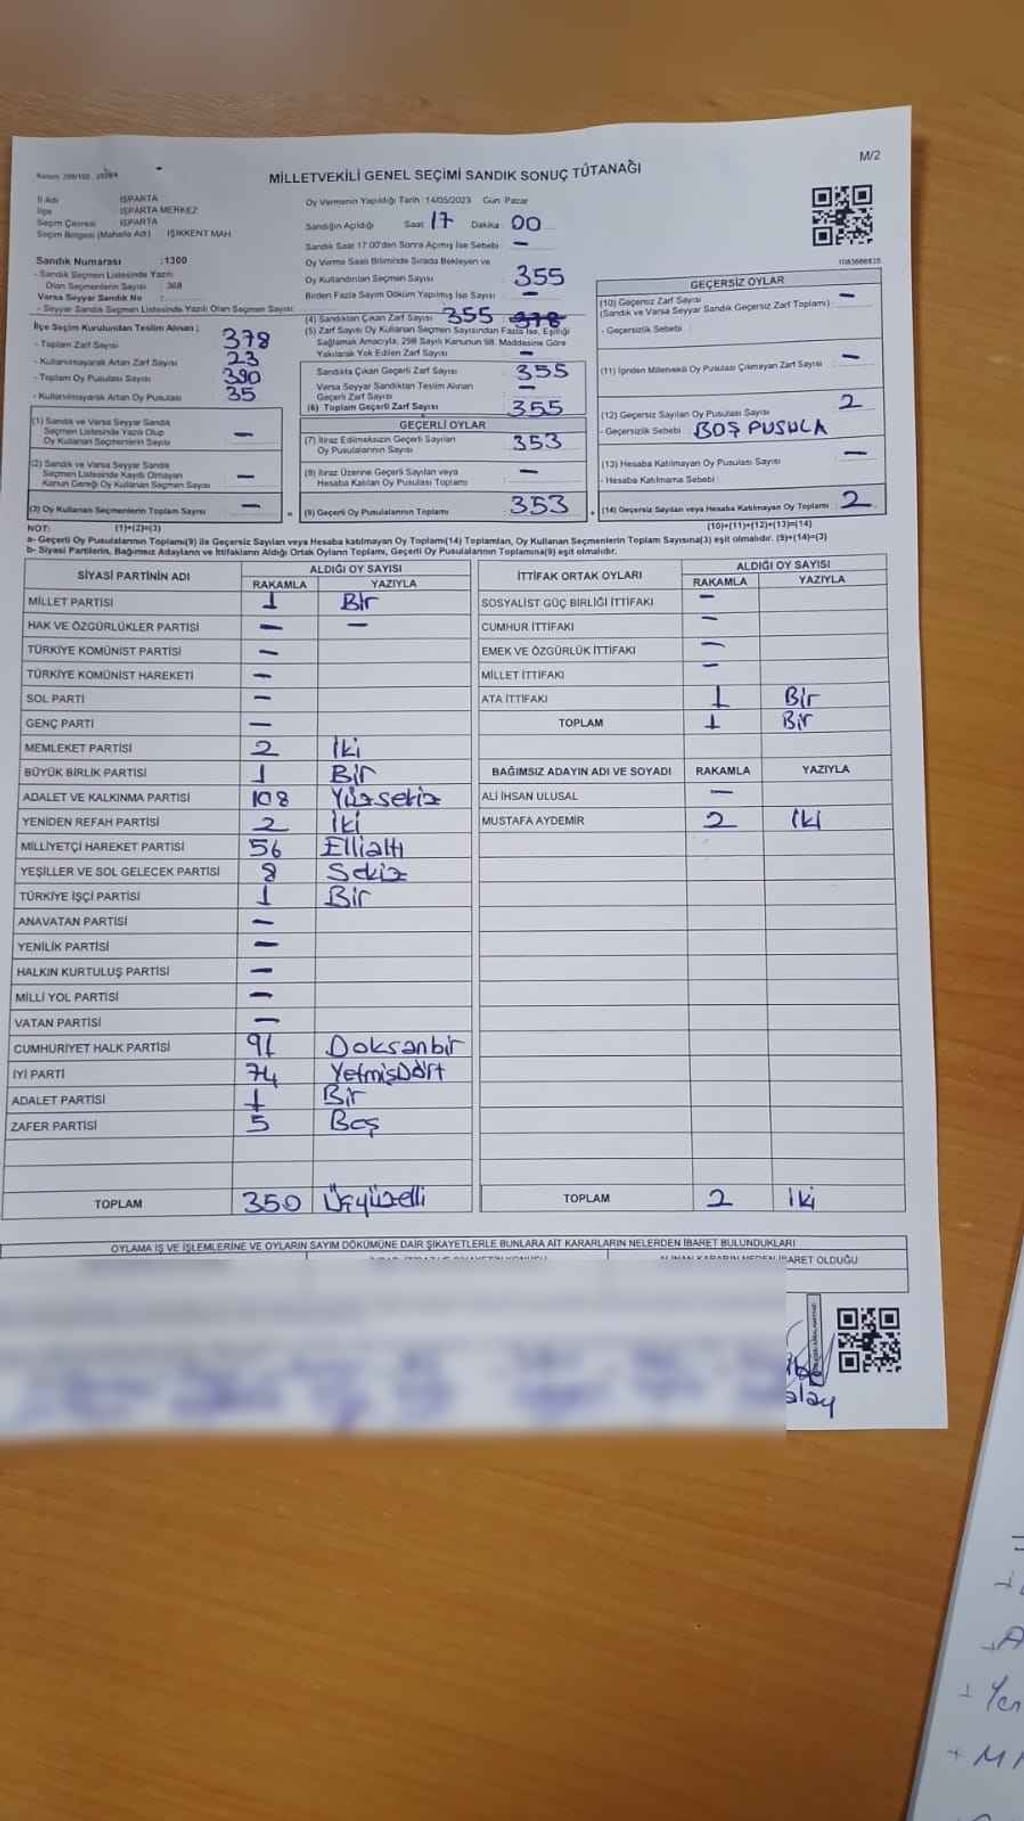 M/2
MİLLETVEKİLİ GENEL SEÇİMİ SANDIK SONUÇ TUTANAĞI
İl Adı ISPARTA
İlçe ISPARTA MERKEZ
Seçim Çevresi ISPARTA
Seçim Bölgesi (Mahalle Adı) IŞIKKENT MAH.
Sandık Numarası :1300
- Sandık Seçmen Listesinde Yazılı
Olan Seçmenlerin Sayısı : 368
Varsa Seyyar Sandık No :
- Seyyar Sandık Seçmen Listesinde Yazılı Olan Seçmen Sayısı:
İlçe Seçim Kurulundan Teslim Alınan ;
- Toplam Zarf Sayısı 378
- Kullanılmayarak Artan Zarf Sayısı 23
- Toplam Oy Pusulası Sayısı 390
- Kullanılmayarak Artan Oy Pusulası 35
(1) Sandık ve Varsa Seyyar Sandık
Seçmen Listesinde Yazılı Olup
Oy Kullanan Seçmenlerin Sayısı –
(2) Sandık ve Varsa Seyyar Sandık
Seçmen Listesinde Kayıtlı Olmayan
Kanun Gereği Oy Kullanan Seçmen Sayısı –
(3) Oy Kullanan Seçmenlerin Toplam Sayısı –
Oy Vermenin Yapıldığı Tarih 14/05/2023 Gün Pazar
Sandığın Açıldığı Saat 17 Dakika 00
Sandık Saat 17:00'den Sonra Açılmış İse Sebebi –
Oy Verme Saati Bitiminde Sırada Bekleyen ve
Oy Kullandırılan Seçmen Sayısı 355
Birden Fazla Sayım Döküm Yapılmış İse Sayısı –
(4) Sandıktan Çıkan Zarf Sayısı 355 378
(5) Zarf Sayısı Oy Kullanan Seçmen Sayısından Fazla İse, Eşitliği
Sağlamak Amacıyla, 298 Sayılı Kanunun 98. Maddesine Göre
Yakılarak Yok Edilen Zarf Sayısı –
Sandıkta Çıkan Geçerli Zarf Sayısı 355
Varsa Seyyar Sandıktan Teslim Alınan
Geçerli Zarf Sayısı –
(6) Toplam Geçerli Zarf Sayısı 355
GEÇERLİ OYLAR
(7) İtiraz Edilmeksizin Geçerli Sayılan
Oy Pusulalarının Sayısı 353
(8) İtiraz Üzerine Geçerli Sayılan veya
Hesaba Katılan Oy Pusulası Toplamı –
(9) Geçerli Oy Pusulalarının Toplamı 353
GEÇERSİZ OYLAR
(10) Geçersiz Zarf Sayısı –
(Sandık ve Varsa Seyyar Sandık Geçersiz Zarf Toplamı)
- Geçersizlik Sebebi :
(11) İçinden Milletvekili Oy Pusulası Çıkmayan Zarf Sayısı –
(12) Geçersiz Sayılan Oy Pusulası Sayısı 2
- Geçersizlik Sebebi BOŞ PUSULA
(13) Hesaba Katılmayan Oy Pusulası Sayısı –
- Hesaba Katılmama Sebebi :
(14) Geçersiz Sayılan veya Hesaba Katılmayan Oy Toplamı 2
NOT: (1)+(2)=(3) (10)+(11)+(12)+(13)=(14)
a- Geçerli Oy Pusulalarının Toplamı(9) ile Geçersiz Sayılan veya Hesaba katılmayan Oy Toplamı(14) Toplamları, Oy Kullanan Seçmenlerin Toplam Sayısına(3) eşit olmalıdır. (9)+(14)=(3)
b- Siyasi Partilerin, Bağımsız Adayların ve İttifakların Aldığı Ortak Oyların Toplamı, Geçerli Oy Pusulalarının Toplamına(9) eşit olmalıdır.
SİYASİ PARTİNİN ADI ALDIĞI OY SAYISI
RAKAMLA YAZIYLA
MİLLET PARTİSİ 1 Bir
HAK VE ÖZGÜRLÜKLER PARTİSİ – –
TÜRKİYE KOMÜNİST PARTİSİ –
TÜRKİYE KOMÜNİST HAREKETİ –
SOL PARTİ –
GENÇ PARTİ –
MEMLEKET PARTİSİ 2 İki
BÜYÜK BİRLİK PARTİSİ 1 Bir
ADALET VE KALKINMA PARTİSİ 108 Yüzsekiz
YENİDEN REFAH PARTİSİ 2 İki
MİLLİYETÇİ HAREKET PARTİSİ 56 Ellialtı
YEŞİLLER VE SOL GELECEK PARTİSİ 8 Sekiz
TÜRKİYE İŞÇİ PARTİSİ 1 Bir
ANAVATAN PARTİSİ –
YENİLİK PARTİSİ –
HALKIN KURTULUŞ PARTİSİ –
MİLLİ YOL PARTİSİ –
VATAN PARTİSİ –
CUMHURİYET HALK PARTİSİ 91 Doksanbir
İYİ PARTİ 74 YetmişDört
ADALET PARTİSİ 1 Bir
ZAFER PARTİSİ 5 Beş
TOPLAM 350 Üçyüzelli
İTTİFAK ORTAK OYLARI ALDIĞI OY SAYISI
RAKAMLA YAZIYLA
SOSYALİST GÜÇ BİRLİĞİ İTTİFAKI –
CUMHUR İTTİFAKI –
EMEK VE ÖZGÜRLÜK İTTİFAKI –
MİLLET İTTİFAKI –
ATA İTTİFAKI 1 Bir
TOPLAM 1 Bir
BAĞIMSIZ ADAYIN ADI VE SOYADI RAKAMLA YAZIYLA
ALİ İHSAN ULUSAL –
MUSTAFA AYDEMİR 2 İki
TOPLAM 2 İki
OYLAMA İŞ VE İŞLEMLERİNE VE OYLARIN SAYIM DÖKÜMÜNE DAİR ŞİKAYETLERLE BUNLARA AİT KARARLARIN NELERDEN İBARET BULUNDUKLARI
ALINAN KARARIN NEDEN İBARET OLDUĞU
alay
+ Yen